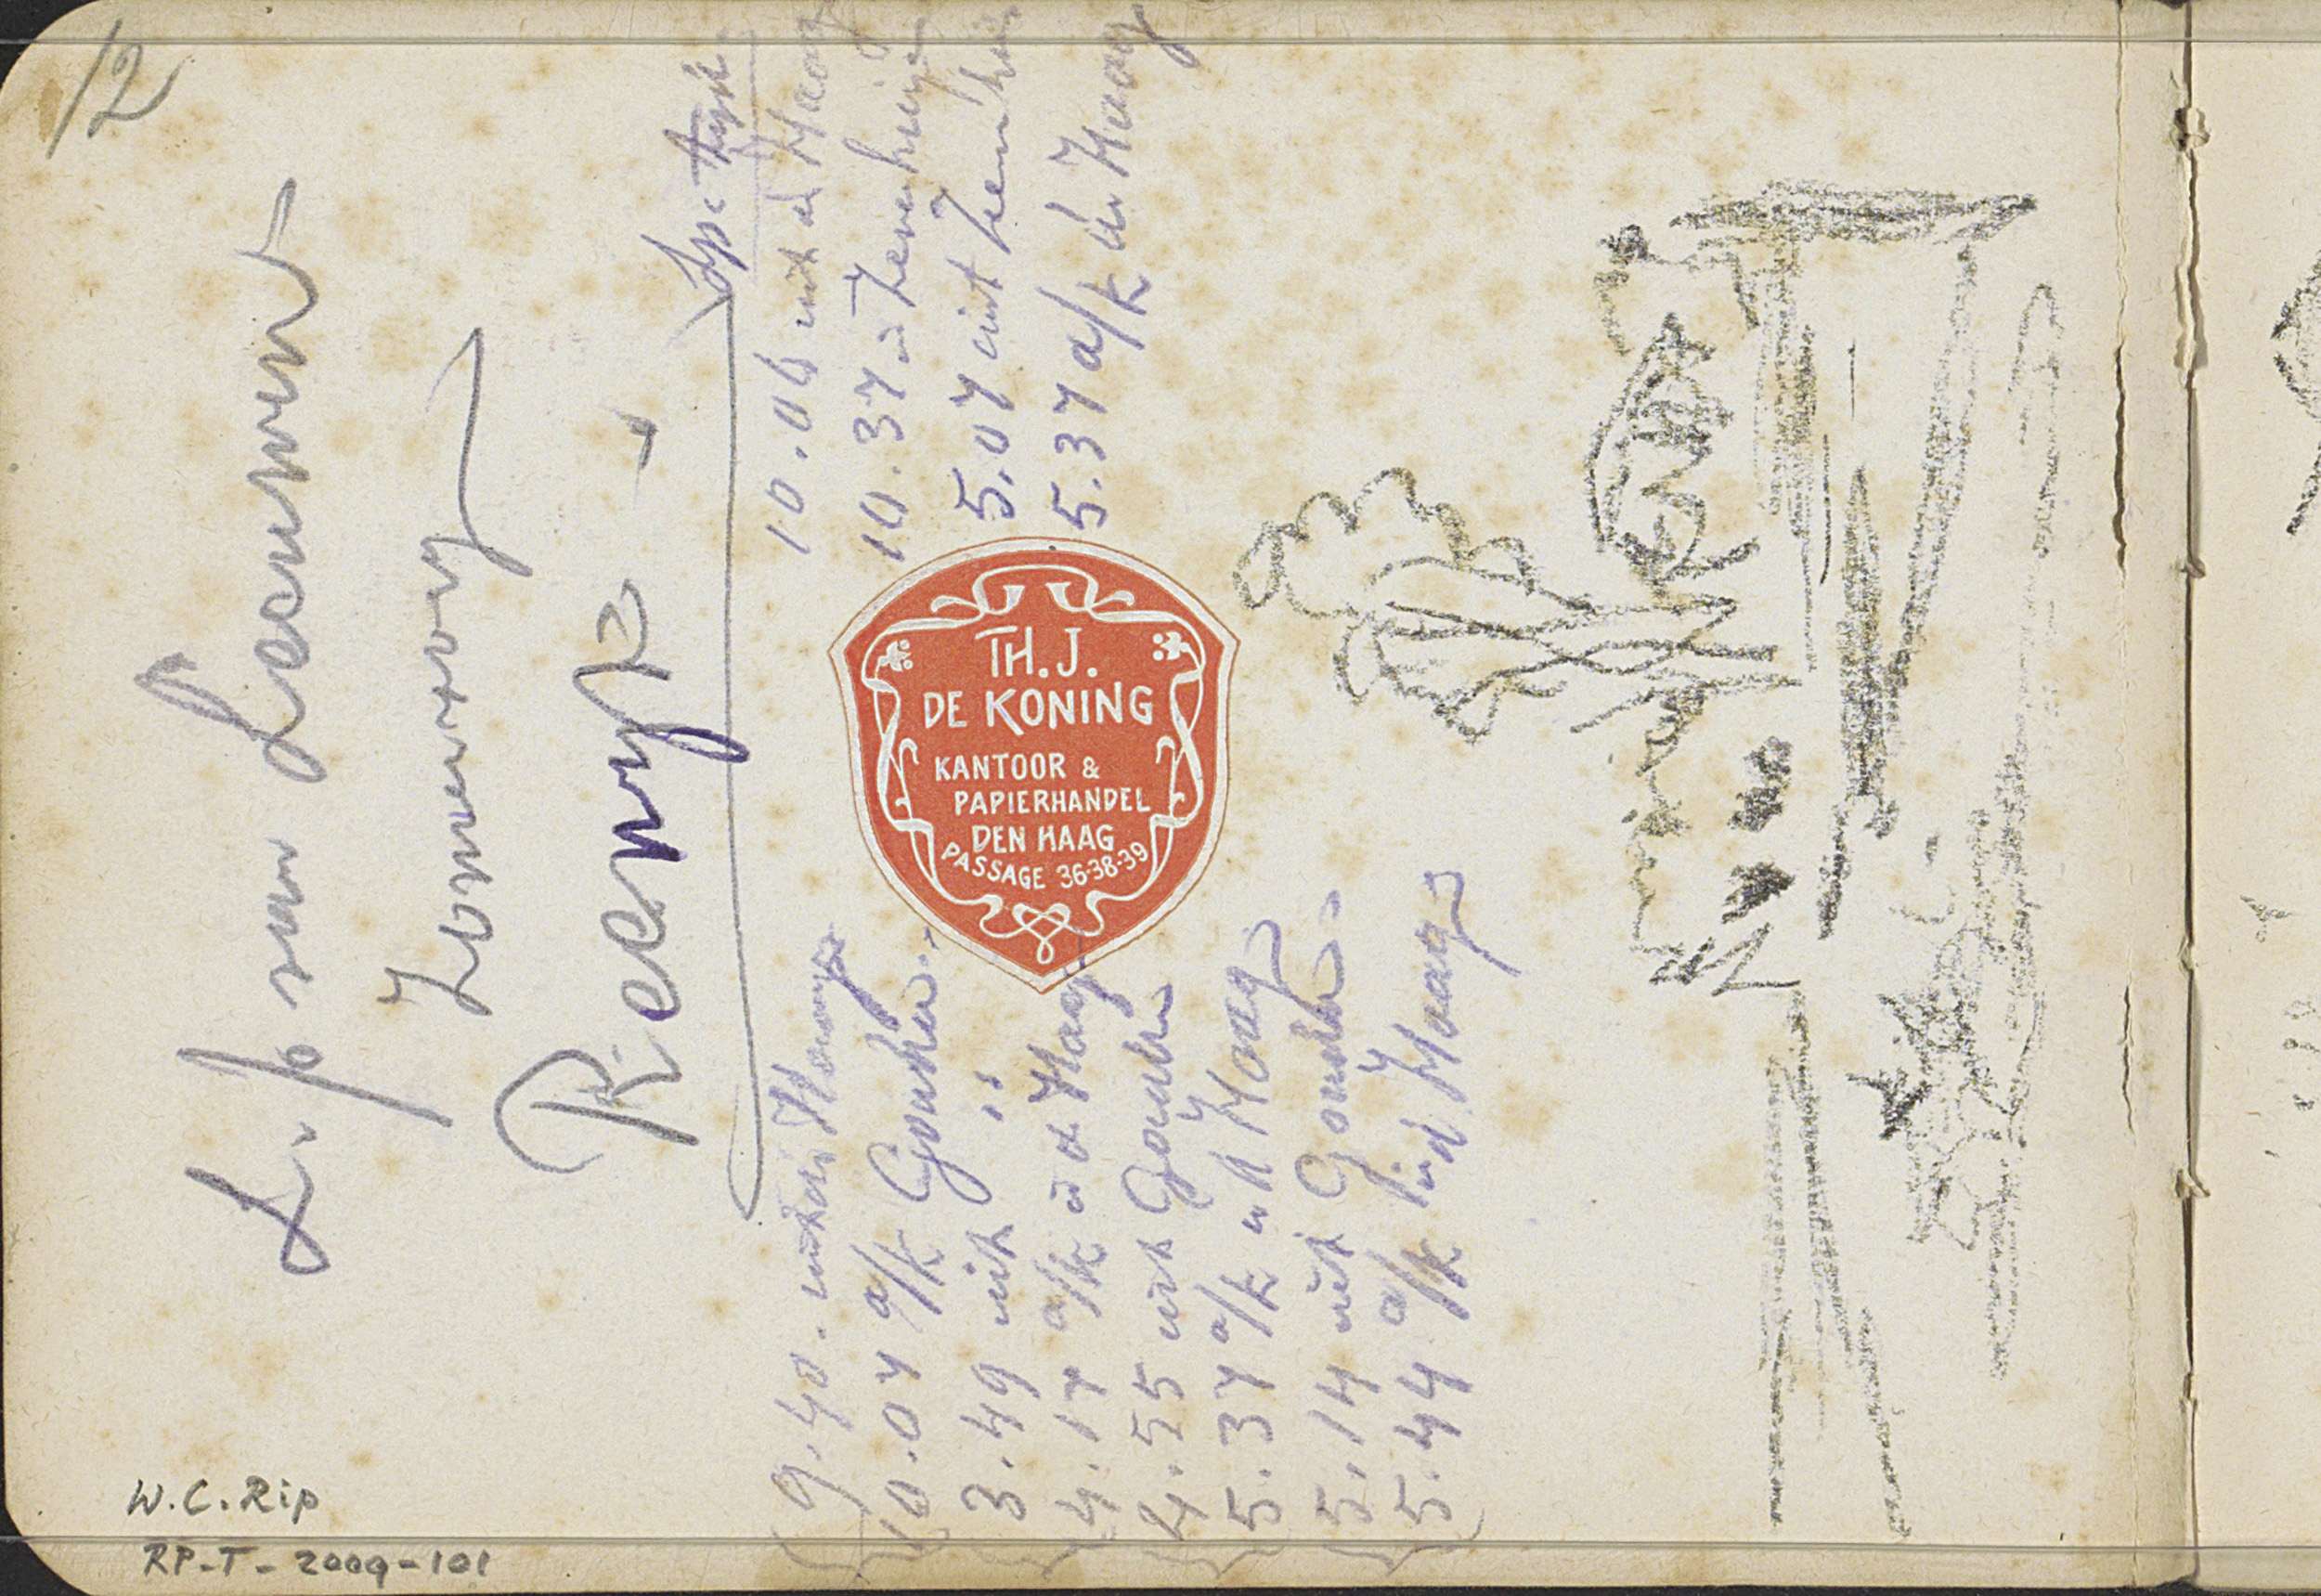 12
L. p van Leeuwen
10.06 uit d Haag
10.37
5.07 uit
5.37 a/k den Haag
TH. J.
DE KONING
KANTOOR &
PAPIERHANDEL
DEN HAAG
PASSAGE 36-38-39
9.40. uit den Haag
10.07 a/k Gouda
3.49 uit "
4.17 a/k d Haag
4.55 uit Gouda
5.37 a/k d Haag
5.14 uit Gouda
5.44 a/k in d Haag
W.C. Rip
RP-T-2009-101